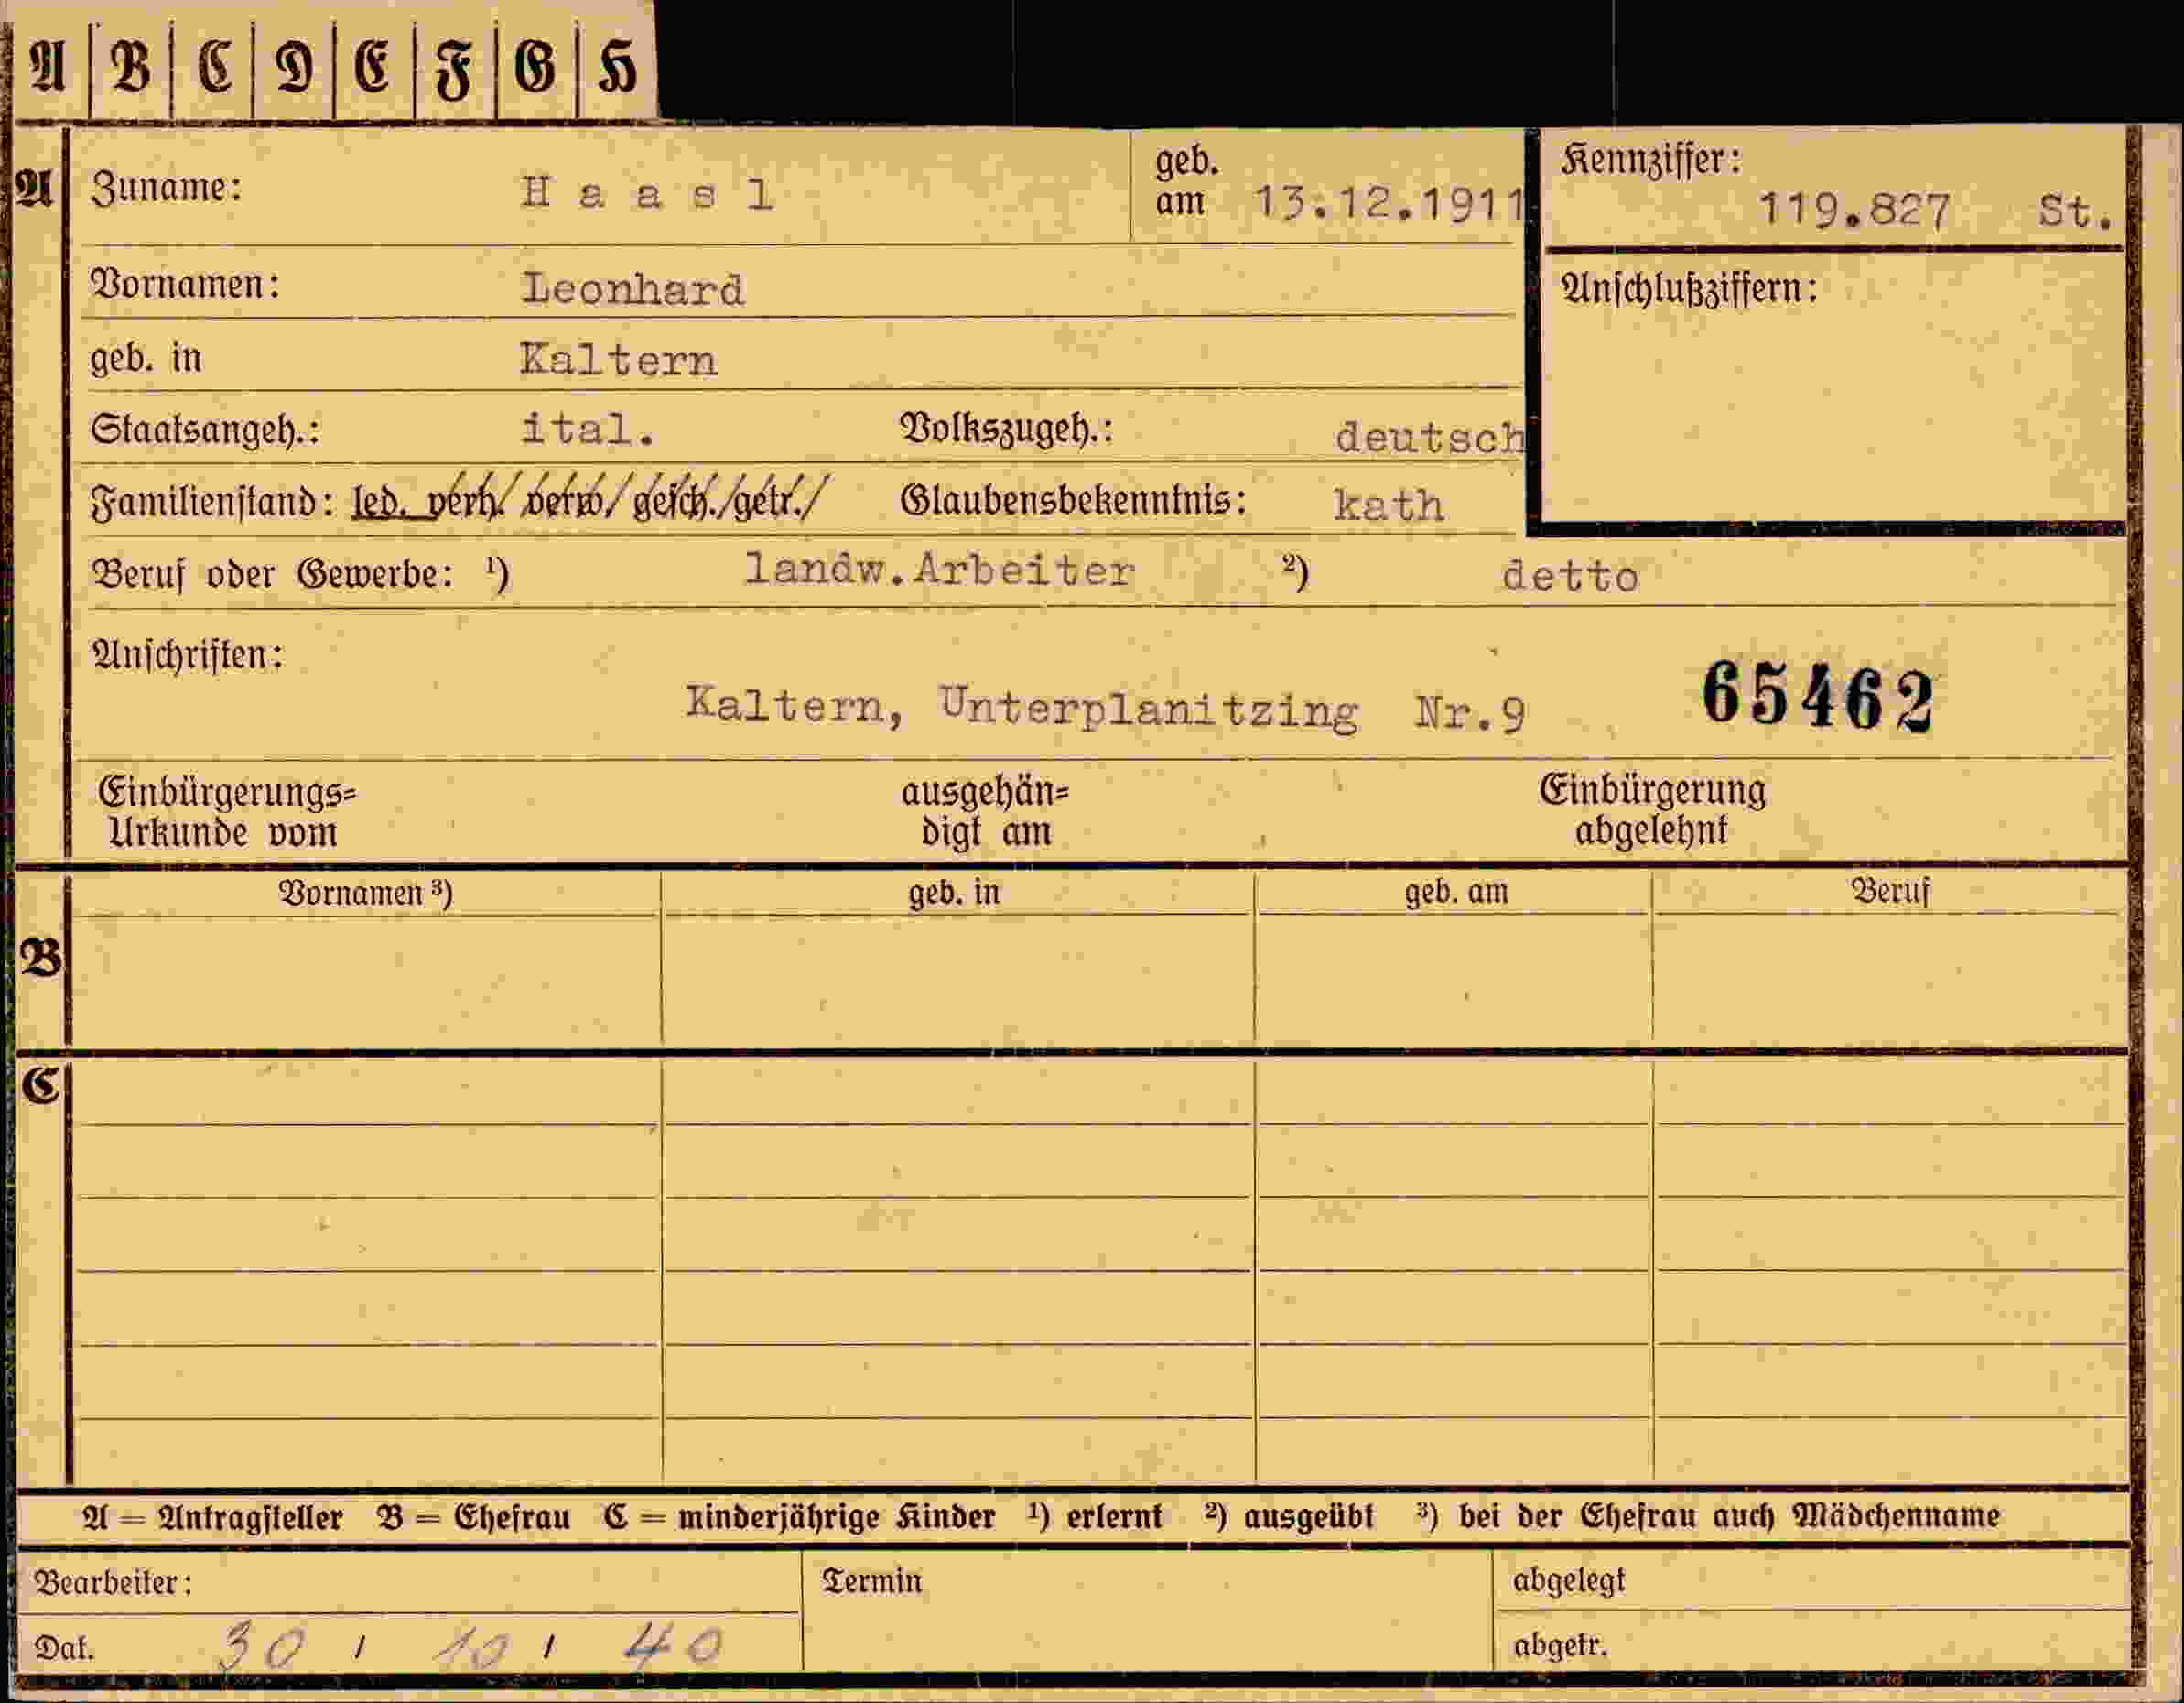 A B C D E F G H
A Zuname: Haasl geb. am 13.12.1911 Kennziffer: 119.827 St.
Vornamen: Leonhard Anschlußziffern:
geb. in Kaltern
Staatsangeh.: ital. Volkszugeh.: deutsch
Familienstand: led. verh./verw/gesch./getr./ Glaubensbekenntnis: kath
Beruf oder Gewerbe: ¹) landw.Arbeiter ²) detto
Anschriften:
Kaltern, Unterplanitzing Nr.9 65462
Einbürgerungs= ausgehän= Einbürgerung
Urkunde vom digt am abgelehnt
Vornamen ³) geb. in geb. am Beruf
B
C
A = Antragsteller B = Ehefrau C = minderjährige Kinder ¹) erlernt ²) ausgeübt ³) bei der Ehefrau auch Mädchenname
Bearbeiter: Termin abgelegt
Dat. 30 / 10 / 40 abgetr.